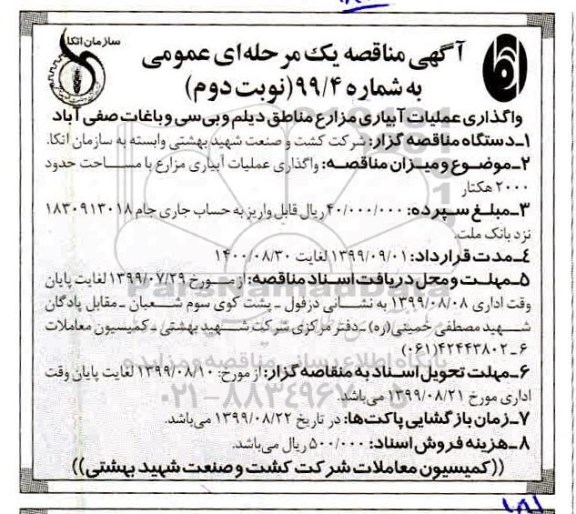 سازمان اتکا
آگهی مناقصه یک مرحله‌ای عمومی
به شماره ۹۹/۴ (نوبت دوم)
واگذاری عملیات آبیاری مزارع مناطق دیلم و بی‌سی و باغات صفی آباد
۱ـ دستگاه مناقصه گزار: شرکت کشت و صنعت شهید بهشتی وابسته به سازمان اتکا.
۲ـ موضوع و میزان مناقصه: واگذاری عملیات آبیاری مزارع با مساحت حدود
۲۰۰۰ هکتار
۳ـ مبلغ سپرده: ۴۰/۰۰۰/۰۰۰ ریال قابل واریز به حساب جاری جام ۱۸۳۰۹۱۳۰۱۸
نزد بانک ملت.
٤ـ مدت قرارداد: ۱۳۹۹/۰۹/۰۱ لغایت ۱۴۰۰/۰۸/۳۰
۵ـ مهلت و محل دریافت اسناد مناقصه: از مورخ ۱۳۹۹/۰۷/۲۹ لغایت پایان
وقت اداری ۱۳۹۹/۰۸/۰۸ به نشانی دزفول ـ پشت کوی سوم شعبان ـ مقابل پادگان
شهید مصطفی خمینی (ره) ـ دفتر مرکزی شرکت شهید بهشتی ـ کمیسیون معاملات
۶ـ۴۲۴۴۳۸۰۲ (۰۶۱)
۶ـ مهلت تحویل اسناد به مناقصه گزار: از مورخ: ۱۳۹۹/۰۸/۱۰ لغایت پایان وقت
اداری مورخ ۱۳۹۹/۰۸/۲۱ می‌باشد.
۷ـ زمان بازگشایی پاکت‌ها: در تاریخ ۱۳۹۹/۰۸/۲۲ می‌باشد.
۸ـ هزینه فروش اسناد: ۵۰۰/۰۰۰ ریال می‌باشد.
((کمیسیون معاملات شرکت کشت و صنعت شهید بهشتی))
پایگاه اطلاع رسانی مناقصه و مزایده